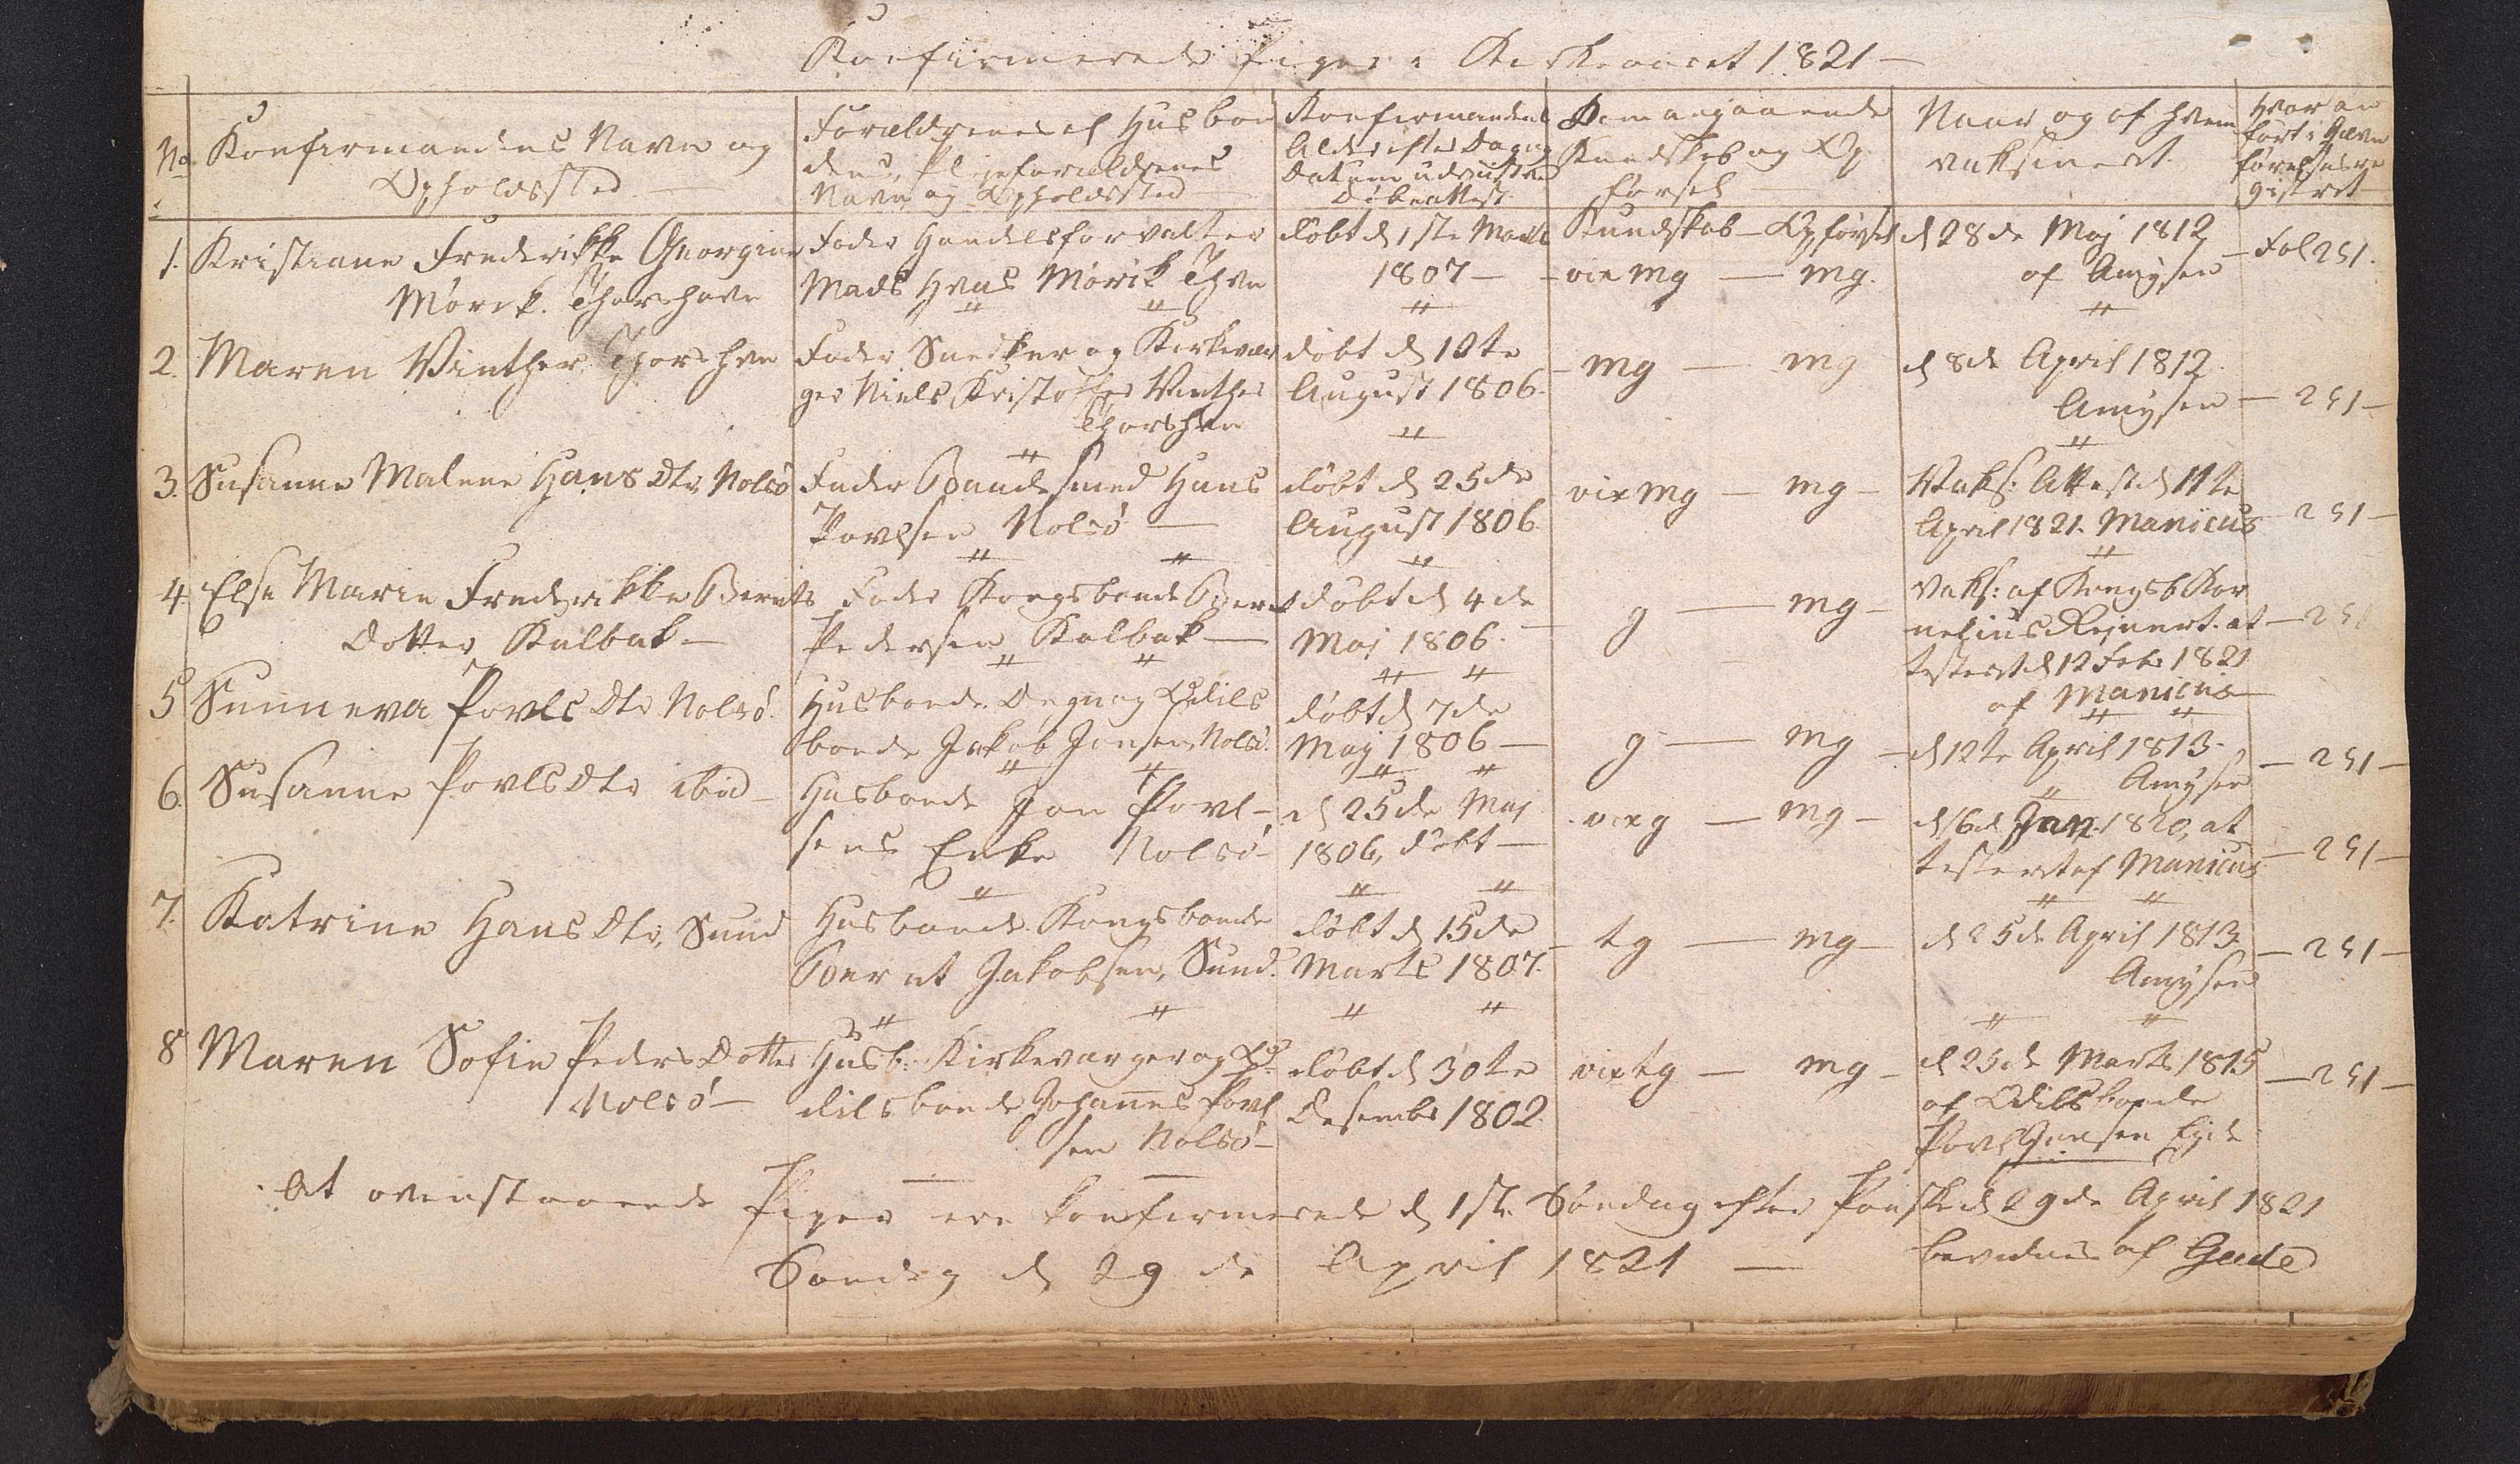 Konfirmerede Piger i Kirkeaaret 1821 —
No.
Konfirmandens Navn og
Opholdssted —
Forældrenes el Husbon
dens, Plejeforældrenes
Navn og Opholdssted
Konfirmandens
Alder efter Dag og
Datum udvisten
Döbeattest
Dom angaaende
Kundskab og Op
førsel
Naar og af hvem
vaksineret.
Hvor an
fört i Jævn
förelsesre
gistret
1. Kristiane Frederikke Georgine
Mörck. Thorshavn
Fader Handelsforvalter
Mads Hvas Mörck Thvn
döbt d 1ste Marts
1807 —
Kundskab — Opförsel
vix mg — mg.
d 28de Maj 1812
af Amÿsen
— Fol 251.
2. Maren Vinther Thorshvn
Fader Snedker og Kirkevær
ger Niels Kristoffer Vinther
Thorshvn
döbt d 10te
August 1806.
— mg — mg
d 8de April 1812
Amÿsen
— 251 —
3. Susanne Malene Hans Dtr Nolsö
Fader Bondesmed Hans
Povlsen Nolsö —
döbt d 25de
August 1806
vix mg — mg —
Vaks: Attest d 11te
April 1821. Manicus
251 —
4. Else Marie Frederikke Bernts
Dotter Kalbak —
Fader Kongsbonde Bernt
Pedersen Kalbak —
döbt d 4de
Maj 1806.
g — mg —
Vaks: af Kongsb Kor
nelius Rejnert. at
testert d 12 Febr 1821
af Manicus
— 251
5 Sunneva Povls Dtr Nolsö.
Husbonde Degn og Odels
bonde Jakob Jonsen, Nolsö.
döbt d 7de
Maj 1806 —
g — mg —
d 12te April 1813.
Amÿsen
— 251 —
6. Susanne Povls Dtr ibid —
Husbonde Jon Povl-
sens Enke Nolsö —
d 25de Maj
1806, döbt —
vix g — mg —
d 6d Jan. 1820, at
testeret af Manicus
— 251 —
7. Katrine Hans Dtr, Sund
Husbonde Kongsbonde
Bernt Jakobsen, Sund.
döbt d 15de
Marts 1807.
— tg — mg —
d 25de April 1813.
Amÿsen
— 251 —
8 Maren Sofie Peders Dotter
Nolsö —
Husb: Kirkeværger og O
delsbonde Johannes Povl
sen Nolsö —
döbt d 30te
Desembr 1802.
vix tg — mg —
d 25de Marts 1815
af Odelsbonde
Povl Jensen Ejde
— 251 —
At ovenstaaende Piger ere konfirmerede d 1ste Söndag efter Paaske d 29de April 1821
Söndag d 29de April 1821 — bevidnes af Gude